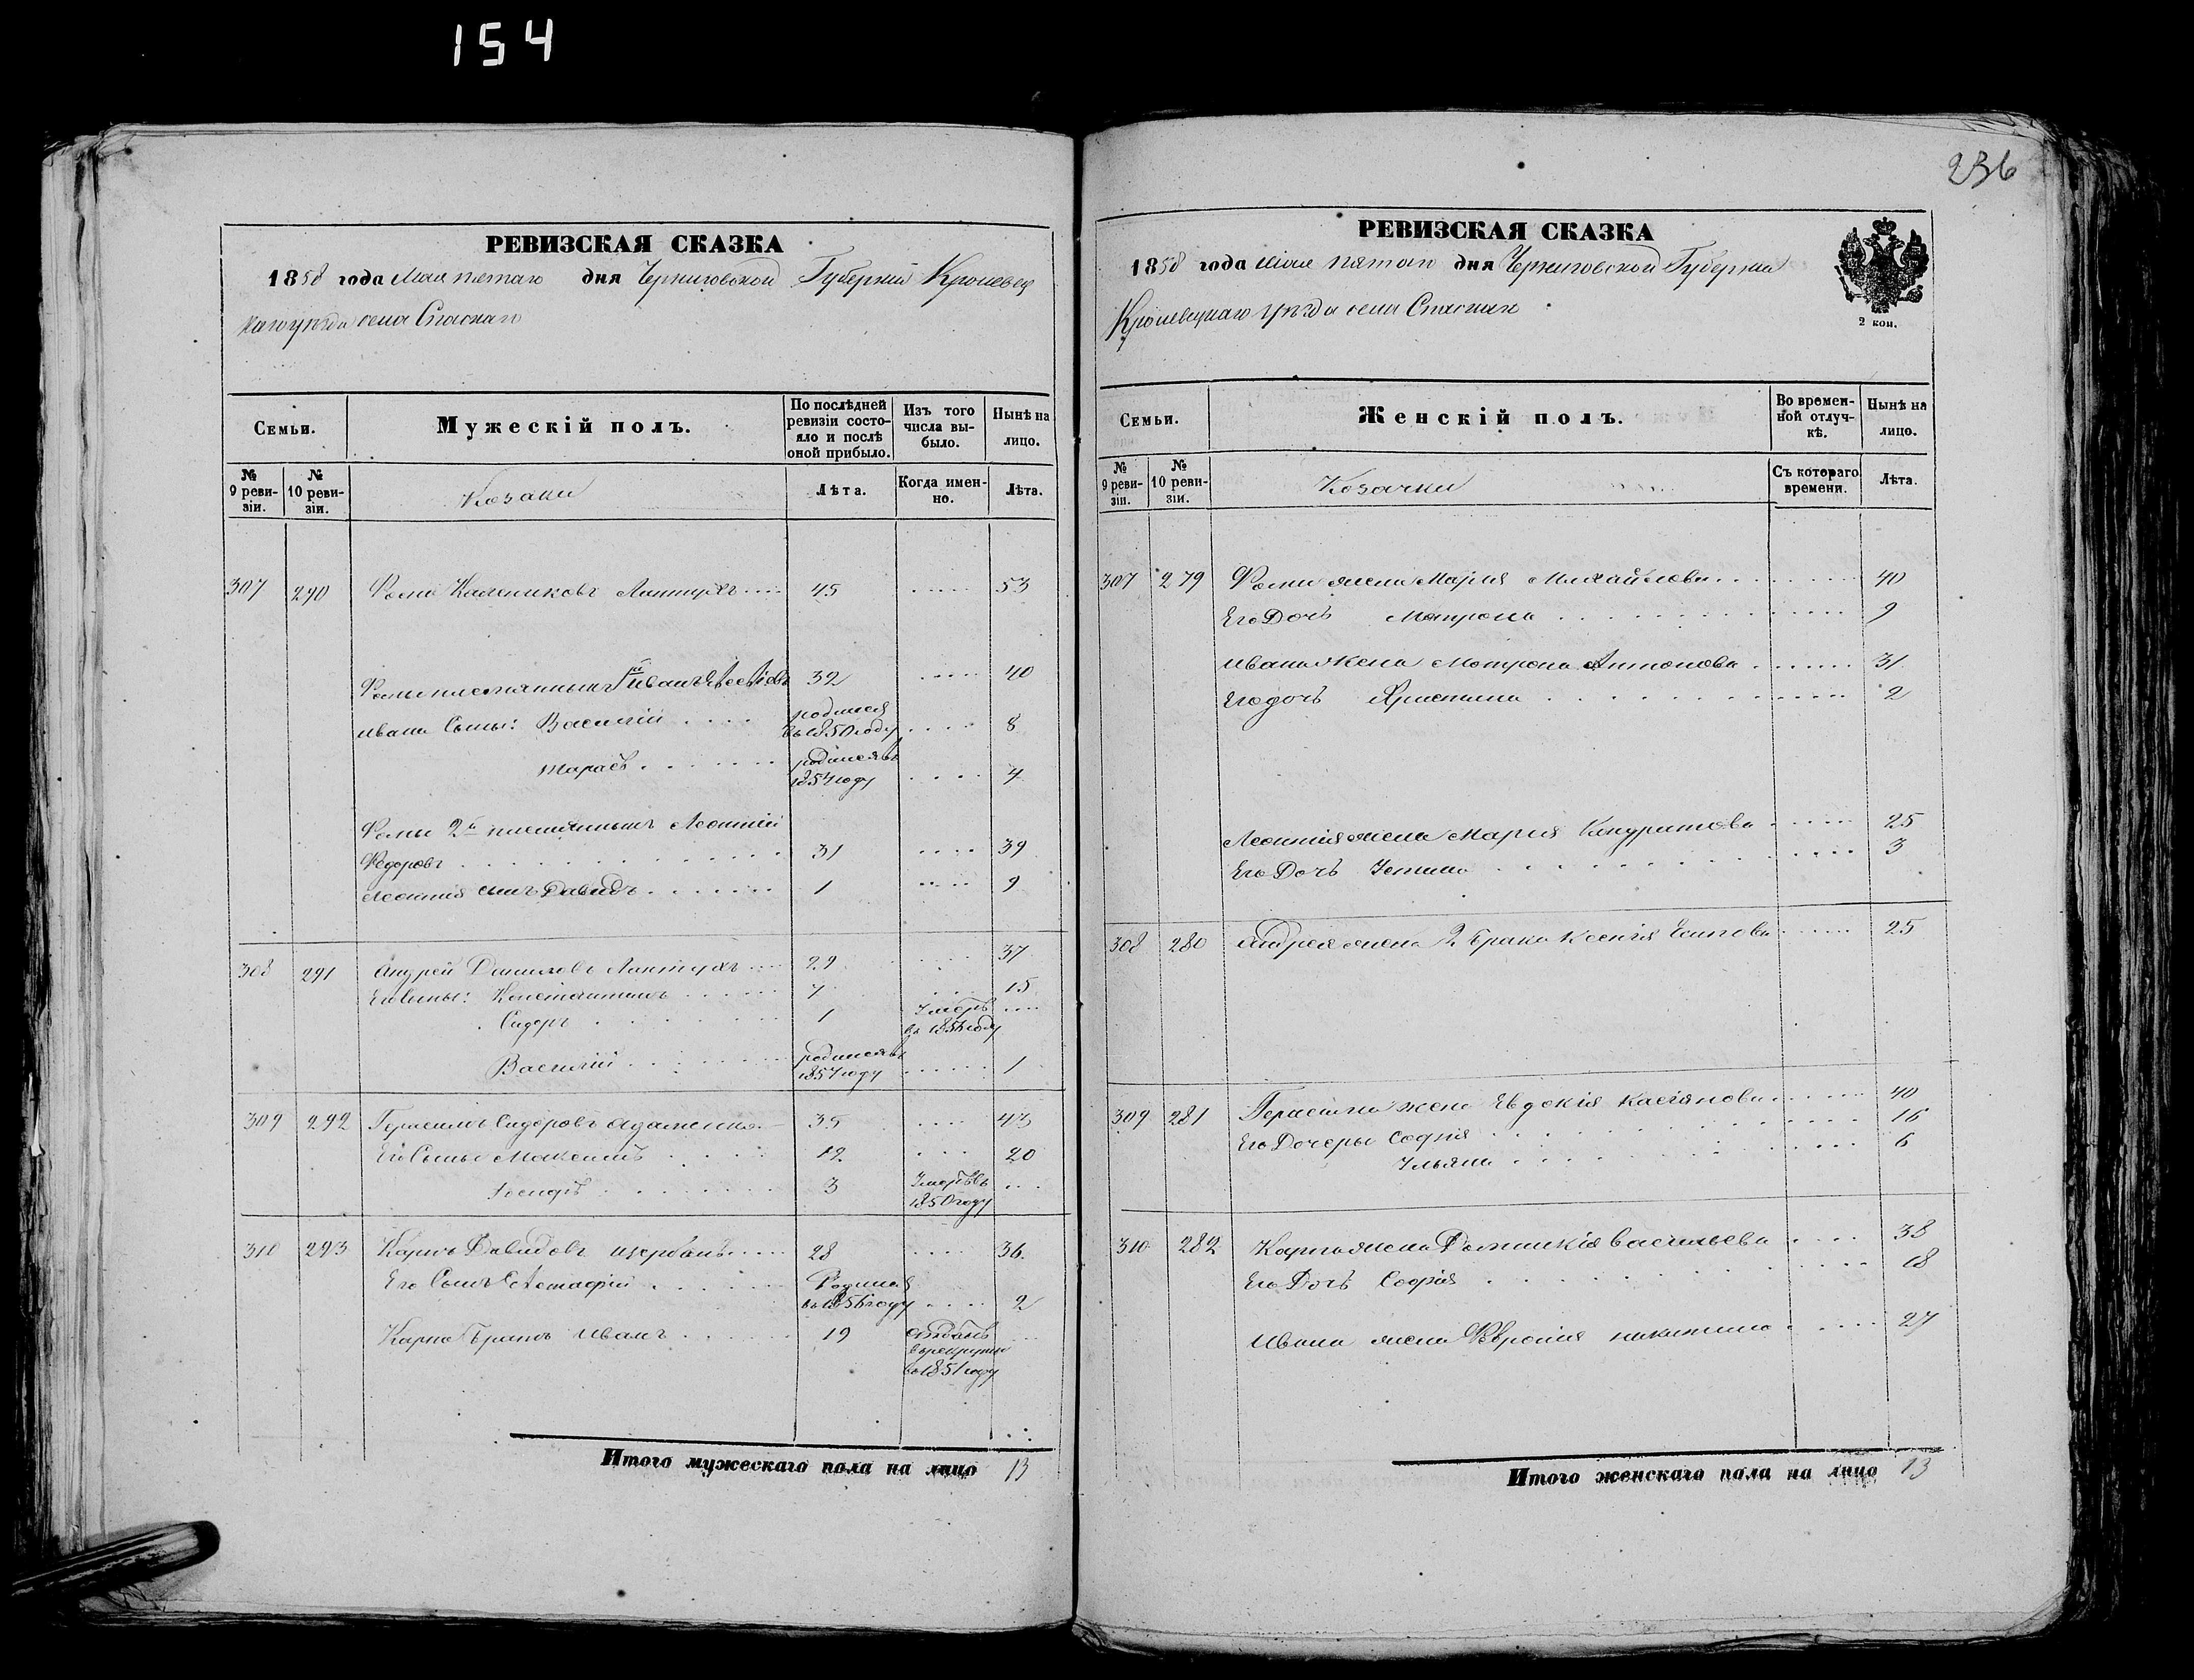 154
236
РЕВИЗСКАЯ СКАЗКА
1858 года Мая пятаго дня Черниговской Губерніи Кролевец
каго уѣзда села Спаскаго
Семьи.
Мужескій полъ.
По послѣдней ревизіи состояло и послѣ оной прибыло.
Изъ того числа выбыло.
Нынѣ на лицо.
№ 9 ревизіи.
№ 10 ревизіи.
Козаки
Лѣта.
Когда именно.
Лѣта.
307 290 Фома Калениковъ Лантухъ .... 45 ..... 53
Фомы племянникъ 1й Иванъ 32 .... 40
Ивана Сыны: Василій .... родился въ 1850 году .... 8
Тарасъ ...... родился въ 1854 году .... 4
Фомы 2й племянникъ Леонтій
Федоровъ ............ 31 .... 39
Леонтія сынъ Давидъ ...... 1 .... 9
308 291 Андрей Даниловъ Лантухъ .... 29 .... 37
Его Сыны: Константинъ ...... 7 ... 15
Сидоръ ....... 1 Умеръ въ 1856 году ....
Василій ...... родился въ 1857 году ...... 1
309 292 Герасимъ Сидоровъ Адаменко 35 .... 43
Его Сыны Максимъ .... 12 ... 20
Іосифъ ....... 3 Умеръ въ 1850 году ...
310 293 Карпъ Давидовъ Щербакъ .... 28 .... 36
Его Сынъ Евстафій ..... Родился въ 1856 году .... 2
Карпа Братъ Иванъ ...... 19 отданъ в рекруты въ 1851 году ...
Итого мужескаго пола на лицо 13
РЕВИЗСКАЯ СКАЗКА
1858 года Мая пятаго дня Черниговской Губерніи
Кролевецкаго уѣзда села Спаскаго
2 коп.
Семьи.
Женскій полъ.
Во временной отлучкѣ.
Нынѣ на лицо.
№ 9 ревизіи.
№ 10 ревизіи.
Козачки
Съ котораго времени.
Лѣта.
307 279 Фомы жена Марія Михайлова ........ 40
Его Дочь Матрона ............ 9
Ивана Жена Матрона Антонова ...... 31
Его дочь Христина ............ 2
Леонтія жена Марія Кондратова ..... 25
Его Дочь Устина .......... 3
308 280 Андрея жена 2 брака Ксенія Есипова ..... 25
309 281 Герасима жена Евдокія Касіянова ...... 40
Его Дочеры Софія ............ 16
Ульяна ............ 6
310 282 Карпа жена Домникія Васильева .... 38
Его Дочь Софія ............ 18
Ивана жена Феврония Никитина ..... 27
Итого женскаго пола на лицо 13